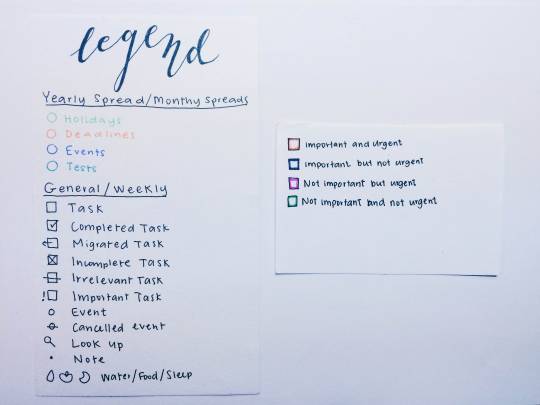 legend
Yearly Spread/Monthy Spreads
Holidays
Deadlines
Events
Tests
General/Weekly
Task
Completed Task
Migrated Task
Incomplete Task
Irrelevant Task
! Important Task
Event
Cancelled event
Look up
Note
Water/Food/Sleep
important and urgent
important but not urgent
Not important but urgent
Not important and not urgent